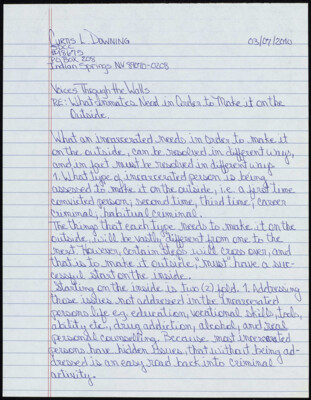 Curtis L Downing 03/07/2010
SDCC
P.O. Box 208
Indian Springs NV 89070-0208
Voices Through the Walls
RE: What Inmates Need in Order to Make it on the
Outside.
What an incarcerated needs in order to make it
on the outside, can be resolved in different ways,
and in fact must be resolved in different ways
1. What type of incarcerated person is being
assessed to make it on the outside, i.e. a first time
convicted person; second time, third time; career
criminal; habitual criminal.
The things that each type needs to make it on the
outside, will be vastly different from one to the
next However, certain steps will cross over, and
that is to make it outside, "must" have a suc-
cessful start on the inside.
Starting on the inside is two (2) fold. 1. Addressing
those issues not addressed in the incarcerated
persons life e.g. education, vocational skills, tools,
ability etc., drug addiction, alcohol, and real
personal counselling. Because most incarcerated
persons have hidden issues, that without being ad-
dressed is an easy road back into criminal
activity.